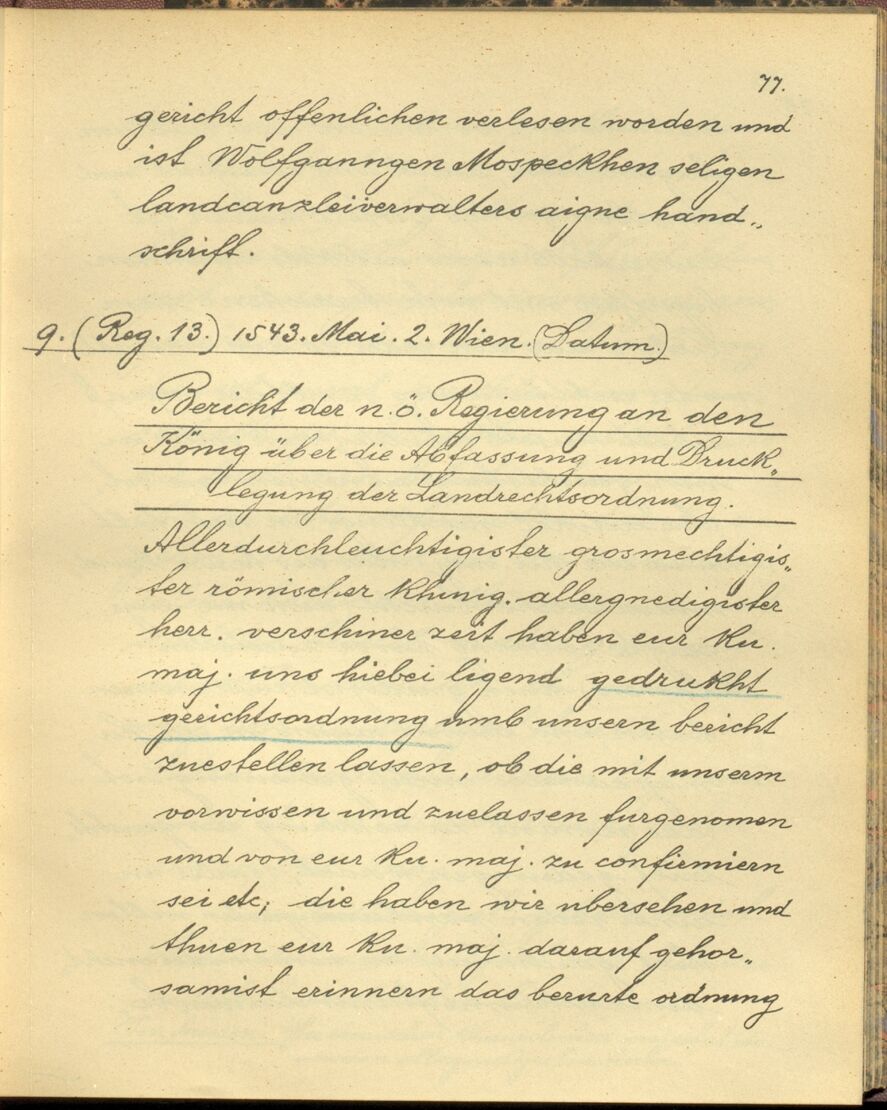 77.
gericht offenlichen verlesen worden und
ist Wolfganngen Mospeckhen seligen
landcanzleiverwalters aigne hand„
schrift.
9. (Reg. 13.) 1543. Mai. 2. Wien. (Datum.)
Bericht der n. ö. Regierung an den
König über die Abfassung und Druck„
legung der Landrechtsordnung.
Allerdurchleuchtigister grosmechtigis„
ter römischer Khunig. allergnedigister
herr. verschiner zeit haben eur Ku.
maj. uns hiebei ligend gedrukht
gerichtsordnung umb unsern bericht
zuestellen lassen, ob die mit unserm
vorwissen und zuelassen furgenomen
und von eur Ku. maj. zu confirmiern
sei etc; die haben wir ubersehen und
thuen eur Ku. maj. darauf gehor„
samist erinnern das berurte ordnung